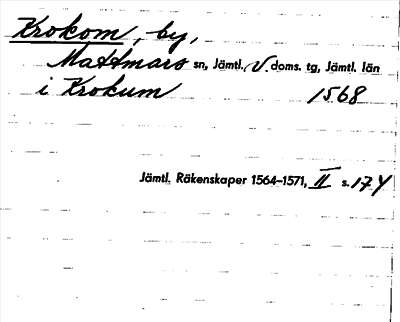 Krokom, by,
Mattmars sn, Jämtl. V. doms. tg, Jämtl. län
i Krokum 1568
Jämtl. Räkenskaper 1564–1571, II s. 174